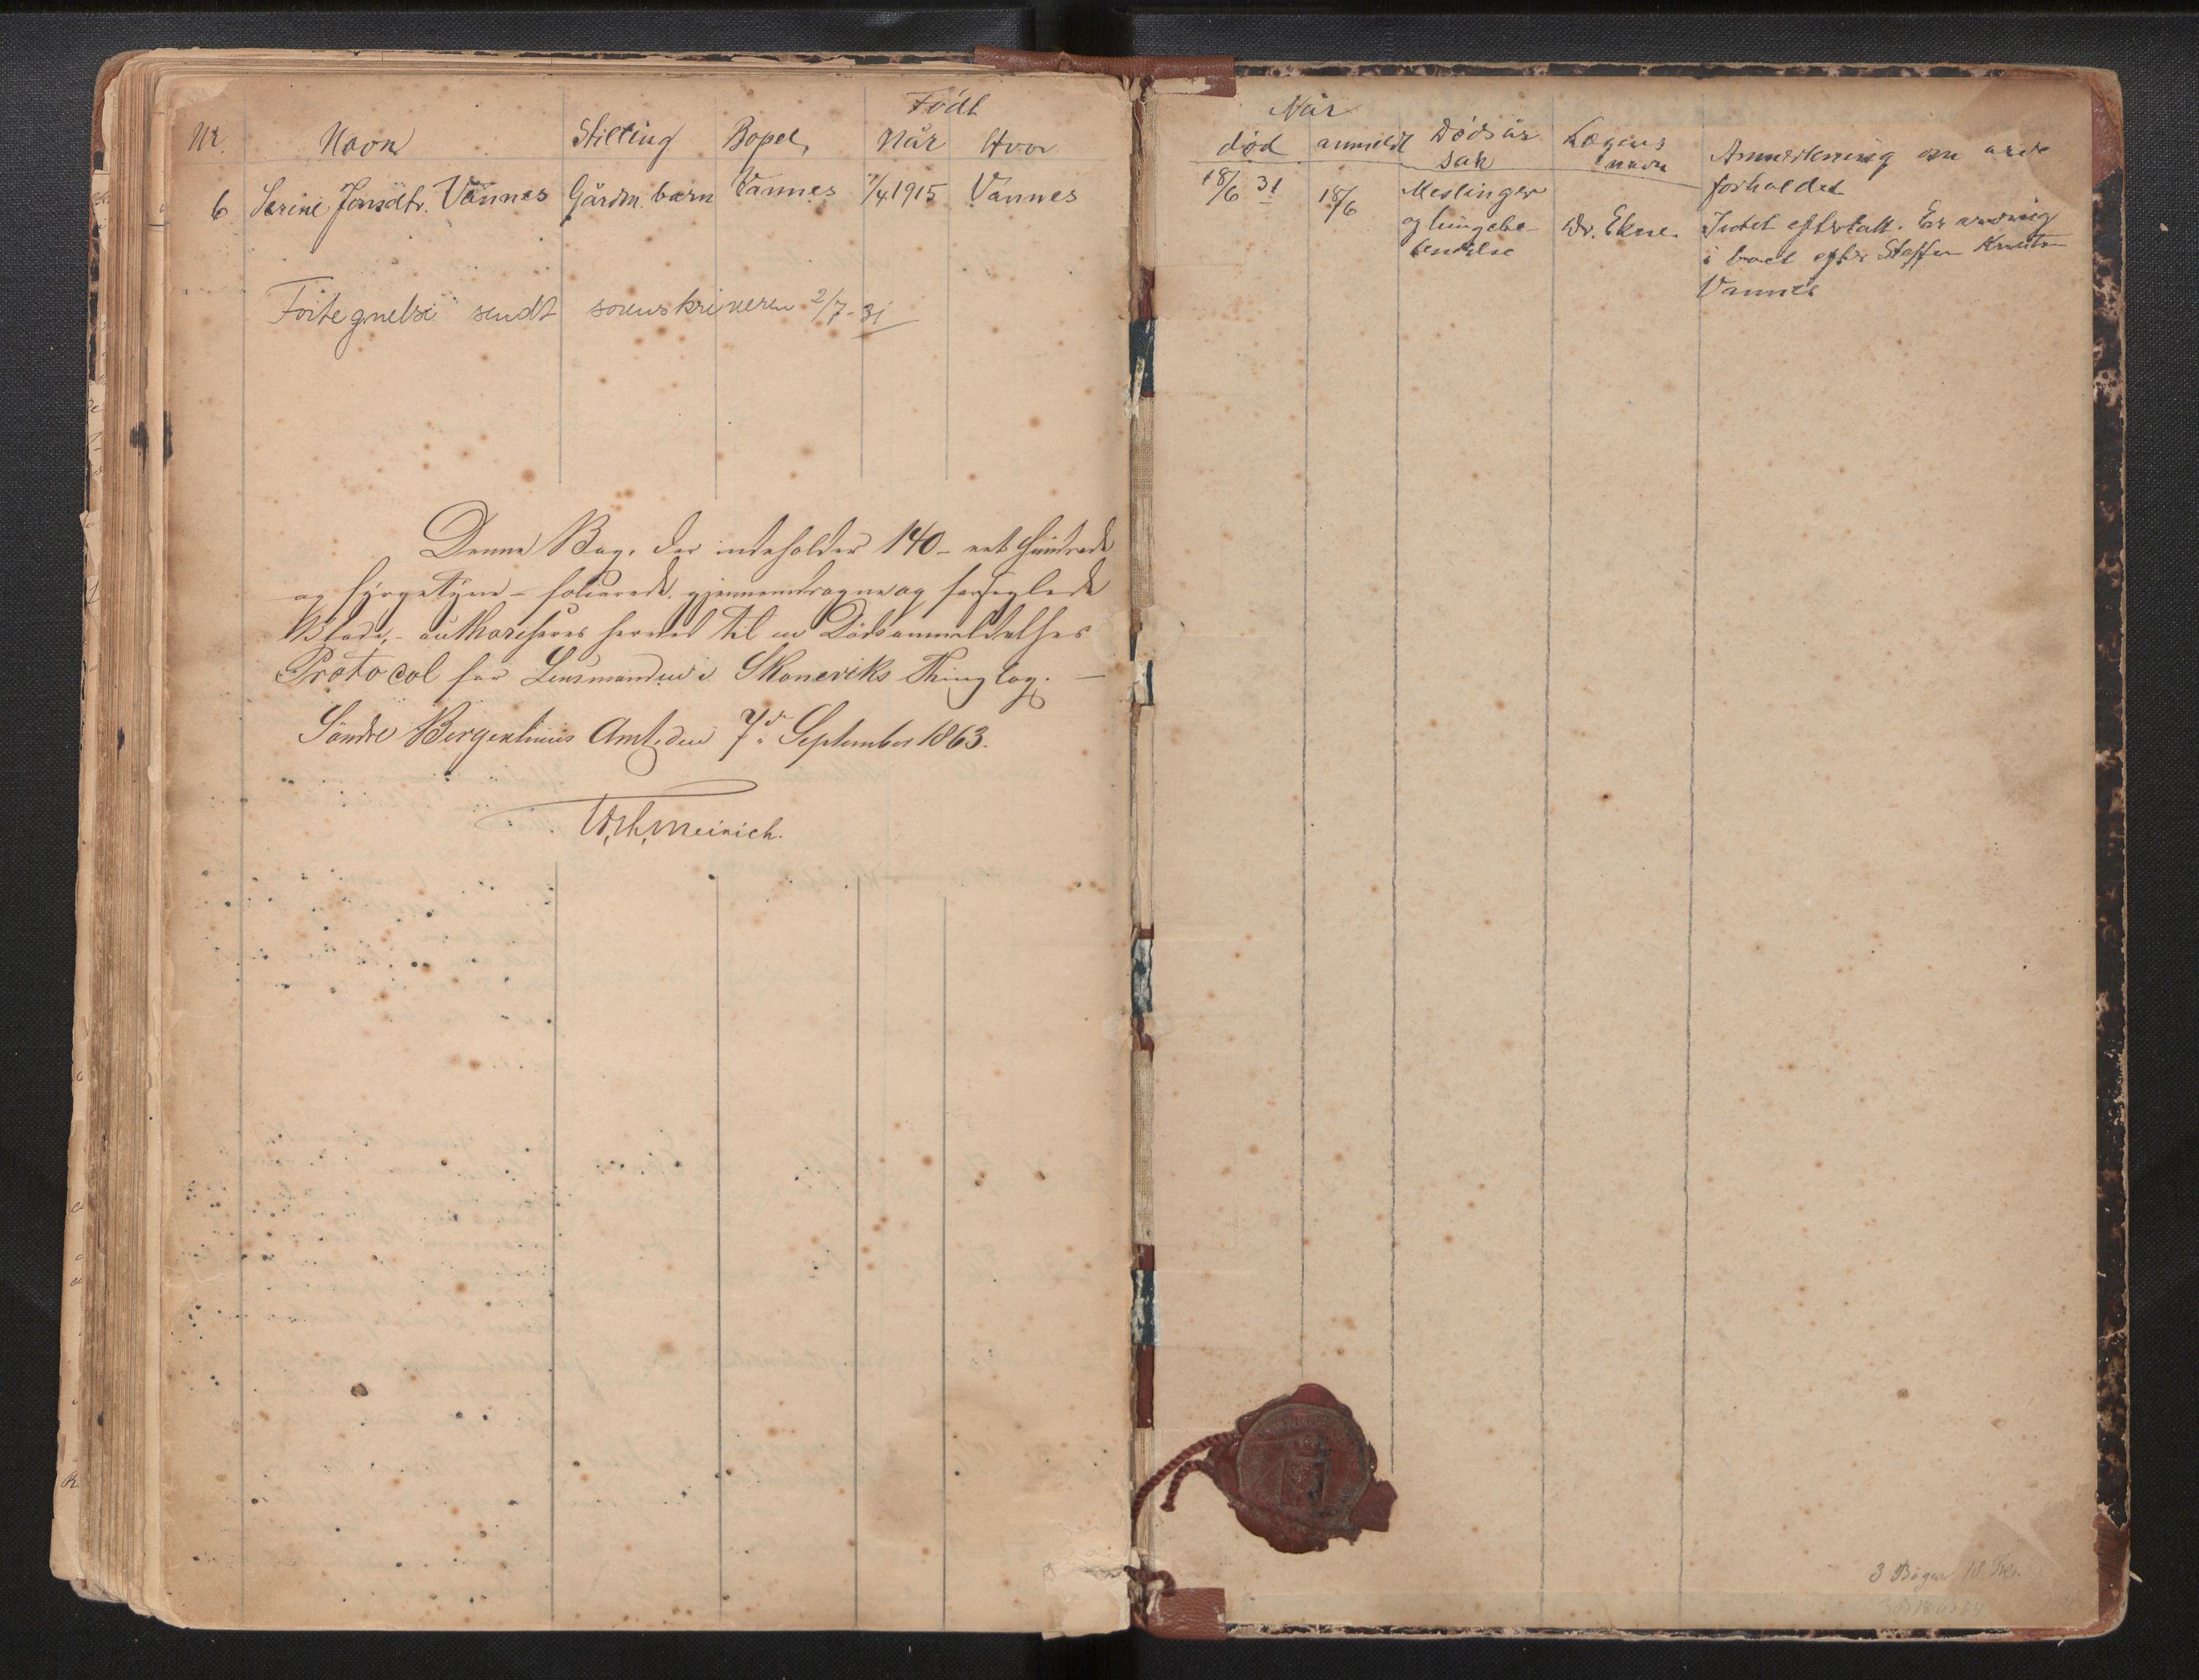 Født
Nr. Navn Stilling Bopel Når Hvor
6 Serine Jonsdtr. Vannes Gårdm. barn Vannes 7/4 1915 Vannes
Fortegnelse sendt sorenskriveren 2/7-31
Denne Bog, der indeholder 140 - eet Hundrede
og fyrgetyve - folierede, gjennemdragne og forseglede
Blade, - authoriseres herved til en Dødsanmeldelses
Protocol for Lensmanden i Skoneviks Thinglag. -
Søndre Bergenhuus Amt, den 7de September 1863.
Når
død anmeldt Dødsår
sak Lægens
navn Anmerkning om arve
forholdet
18/6 31 18/6 Meslinger
og lungebe-
tendelse Dr. Ekne. Intet efterlatt. Er arving
i boet efter Steffen Knutsen
Vannes
3 Bøger 18